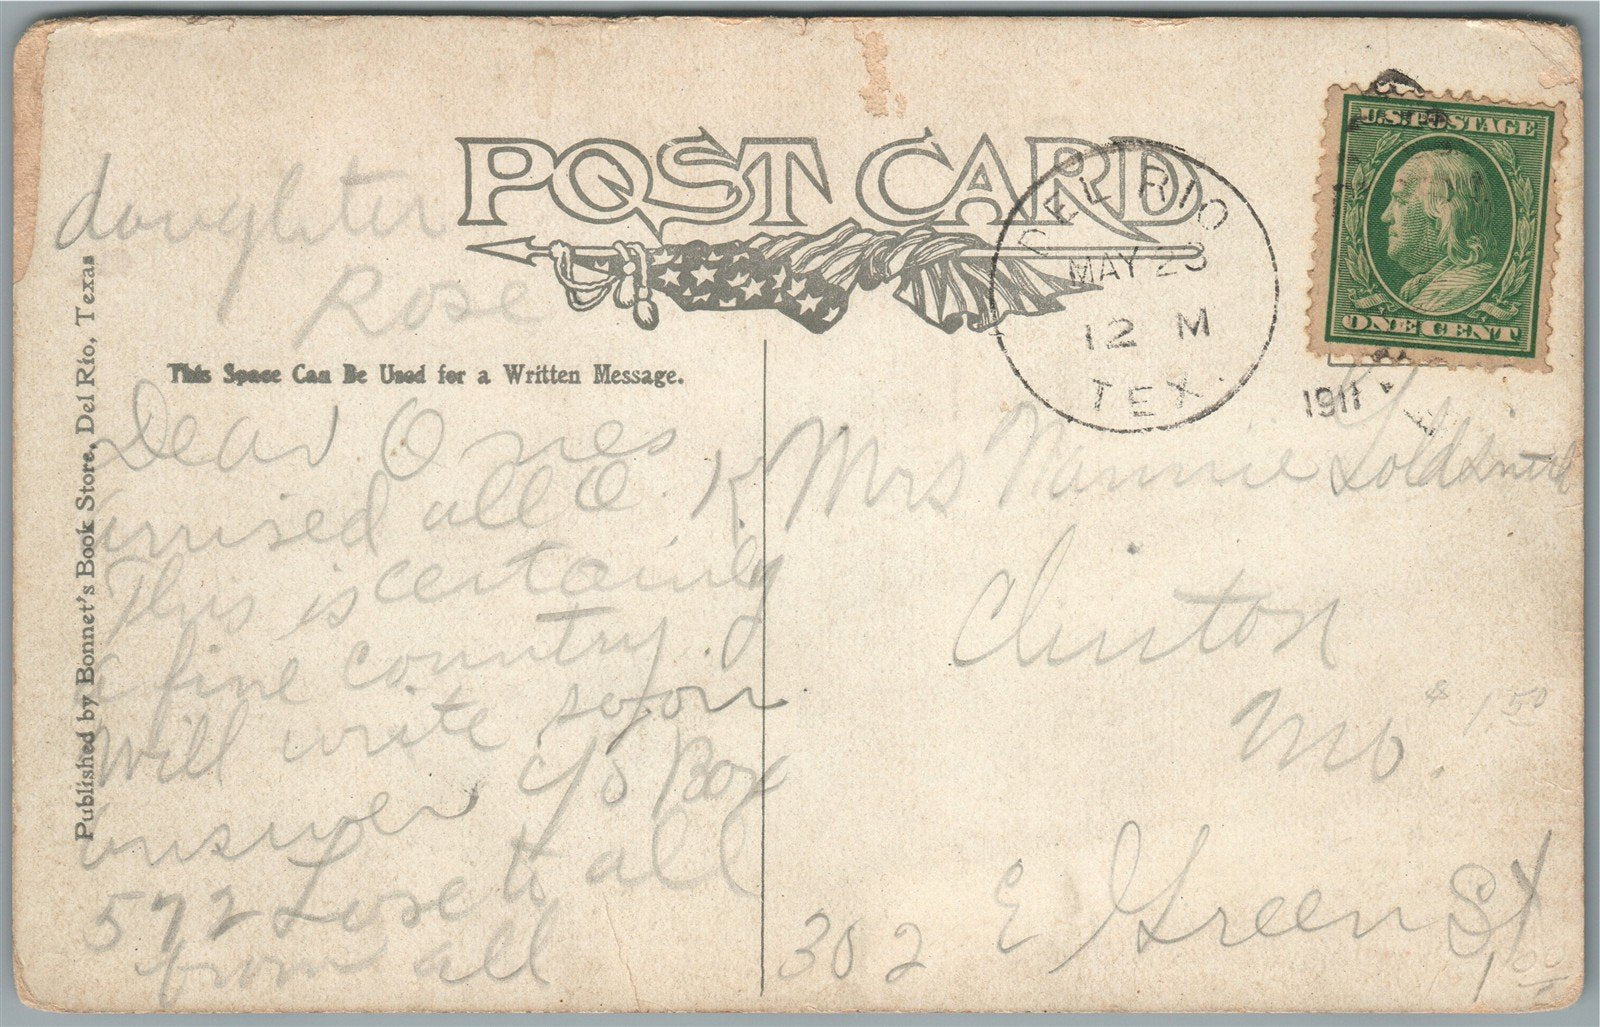 POST CARD
DEL RIO
MAY 23
12 M
TEX.
1911
U.S. POSTAGE
ONE CENT
This Space Can Be Used for a Written Message.
Published by Bonnet's Book Store, Del Rio, Texas
Dear Ones
arrived all O. K.
This is certainly
a fine country.
Will write soon
answer c/o Box
572 Love to all
from all
daughter
Rose
Mrs Nannie Goldsmith
Clinton
Mo.
302 E Green St
$1.50
1.00